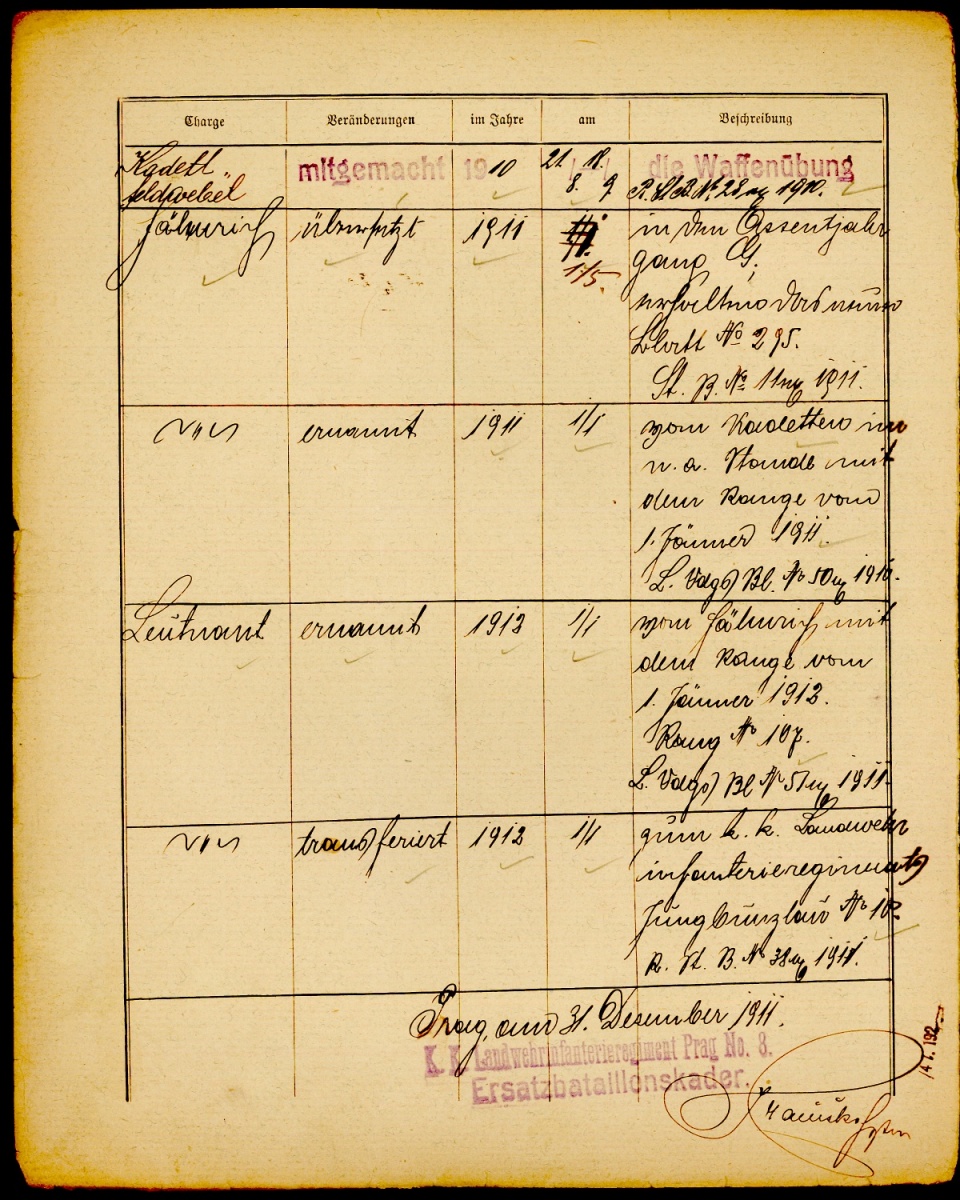 Charge Veränderungen im Jahre am Beschreibung
Kadett mitgemacht 1910 21. 18. die Waffenübung
feldwebel 8. 9. R. St. B. № 28 ex 1910.
Fähnrich übersetzt 1911 in den Assentjahr
1/5. gang G;
erhält das neue
Blatt № 295.
St. B. № 11 ex 1911.
ernannt 1911 1/1 vom Kadetten im
n. a. Stande mit
dem Range vom
1. Jänner 1911.
L. Vdgs Bl. № 50 ex 1910.
Leutnant ernannt 1912 1/1 vom Fähnrich mit
dem Range vom
1. Jänner 1912.
Rang № 107.
L. Vdgs Bl № 51 ex 1911.
transferiert 1912 1/1 zum k. k. Landwehr
infanterieregimente
Jungbunzlau № 10.
R. St. B. № 38 ex 1911.
Prag, am 31. Dezember 1911.
K. K. Landwehrinfanterieregiment Prag No. 8.
Ersatzbataillonskader.